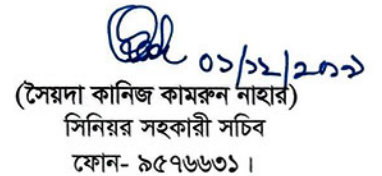 ০১/১২/২০১১
(সৈয়দা কানিজ কামরুন নাহার)
সিনিয়র সহকারী সচিব
ফোন- ৯৫৭৬৬৩১।